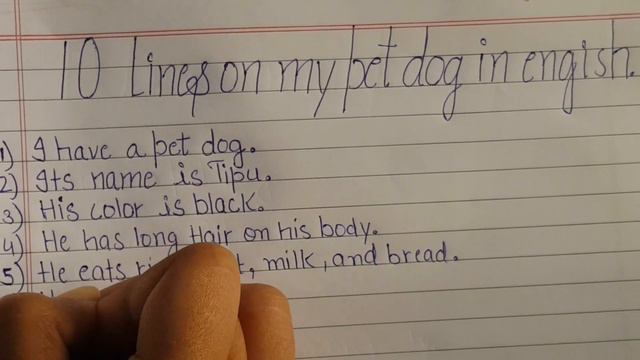 10 Lines on my pet dog in engish.
1) I have a pet dog.
2) Its name is Tipu.
3) His color is black.
4) He has long Hair on his body.
5) He eats milk, and bread.